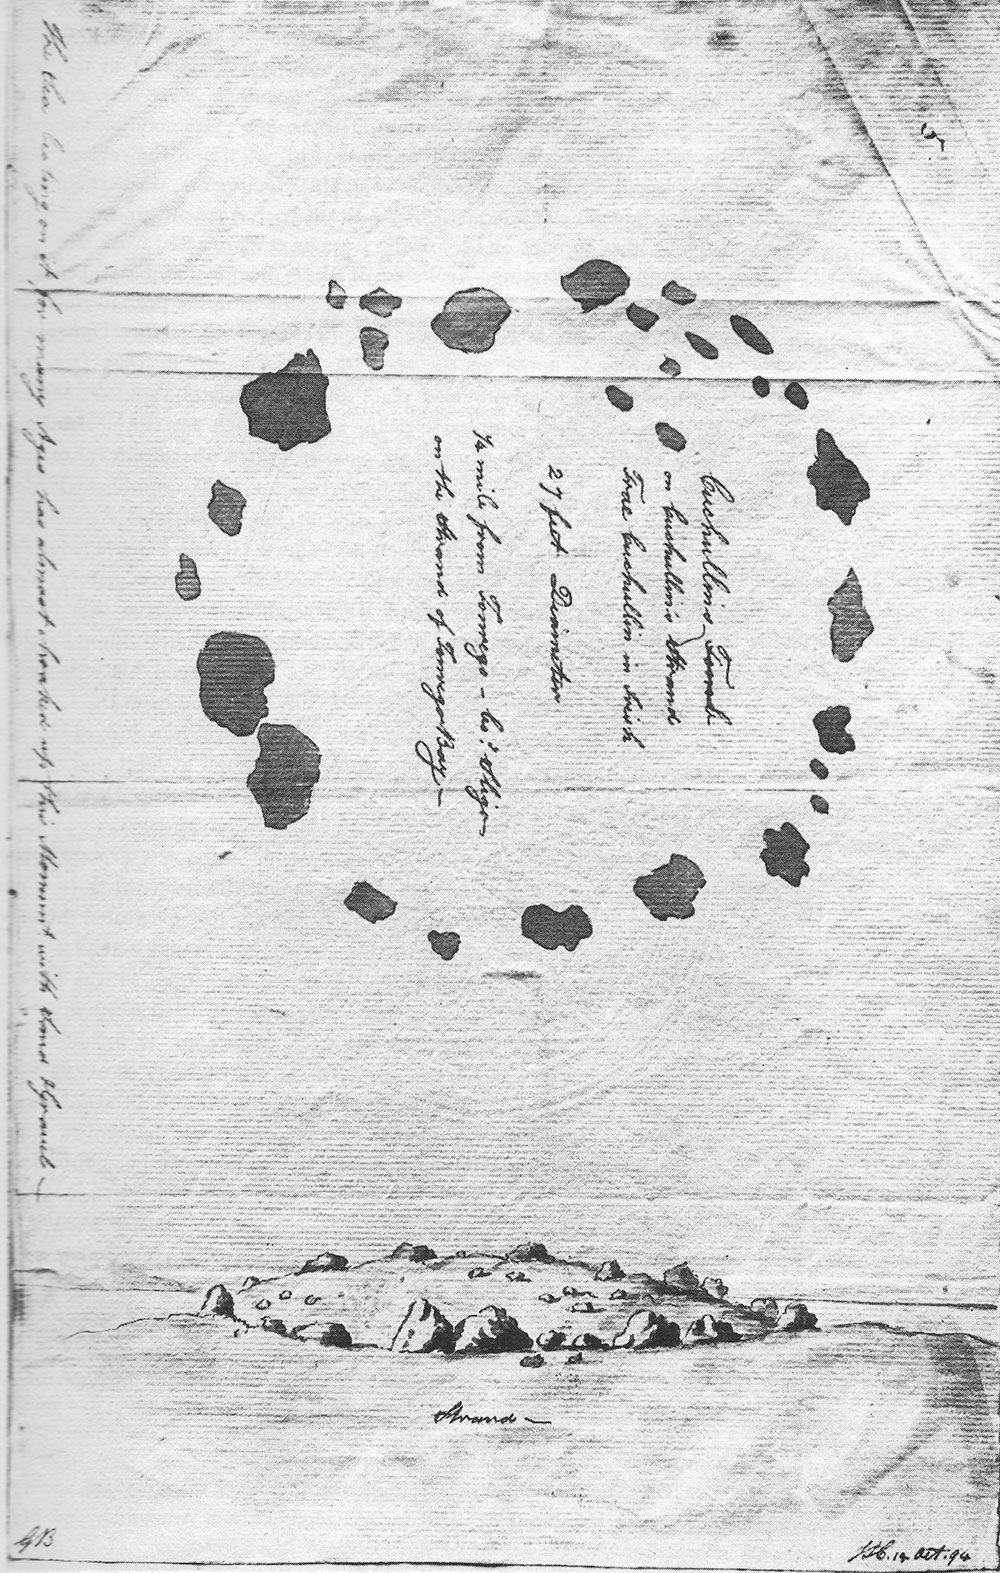 Cuchullins Tomb
on Cuchullin's Strand
Trae Cuchullin in Irish
27 feet Diameter
1/4 mile from Tonrego - Co: Sligo
on the Strand of Tonrego Bay -
The Sea beating on it, for many Ages has almost heaped up this Monumt with Sand & Gravel -
Strand -
GB
Oct. 94
5